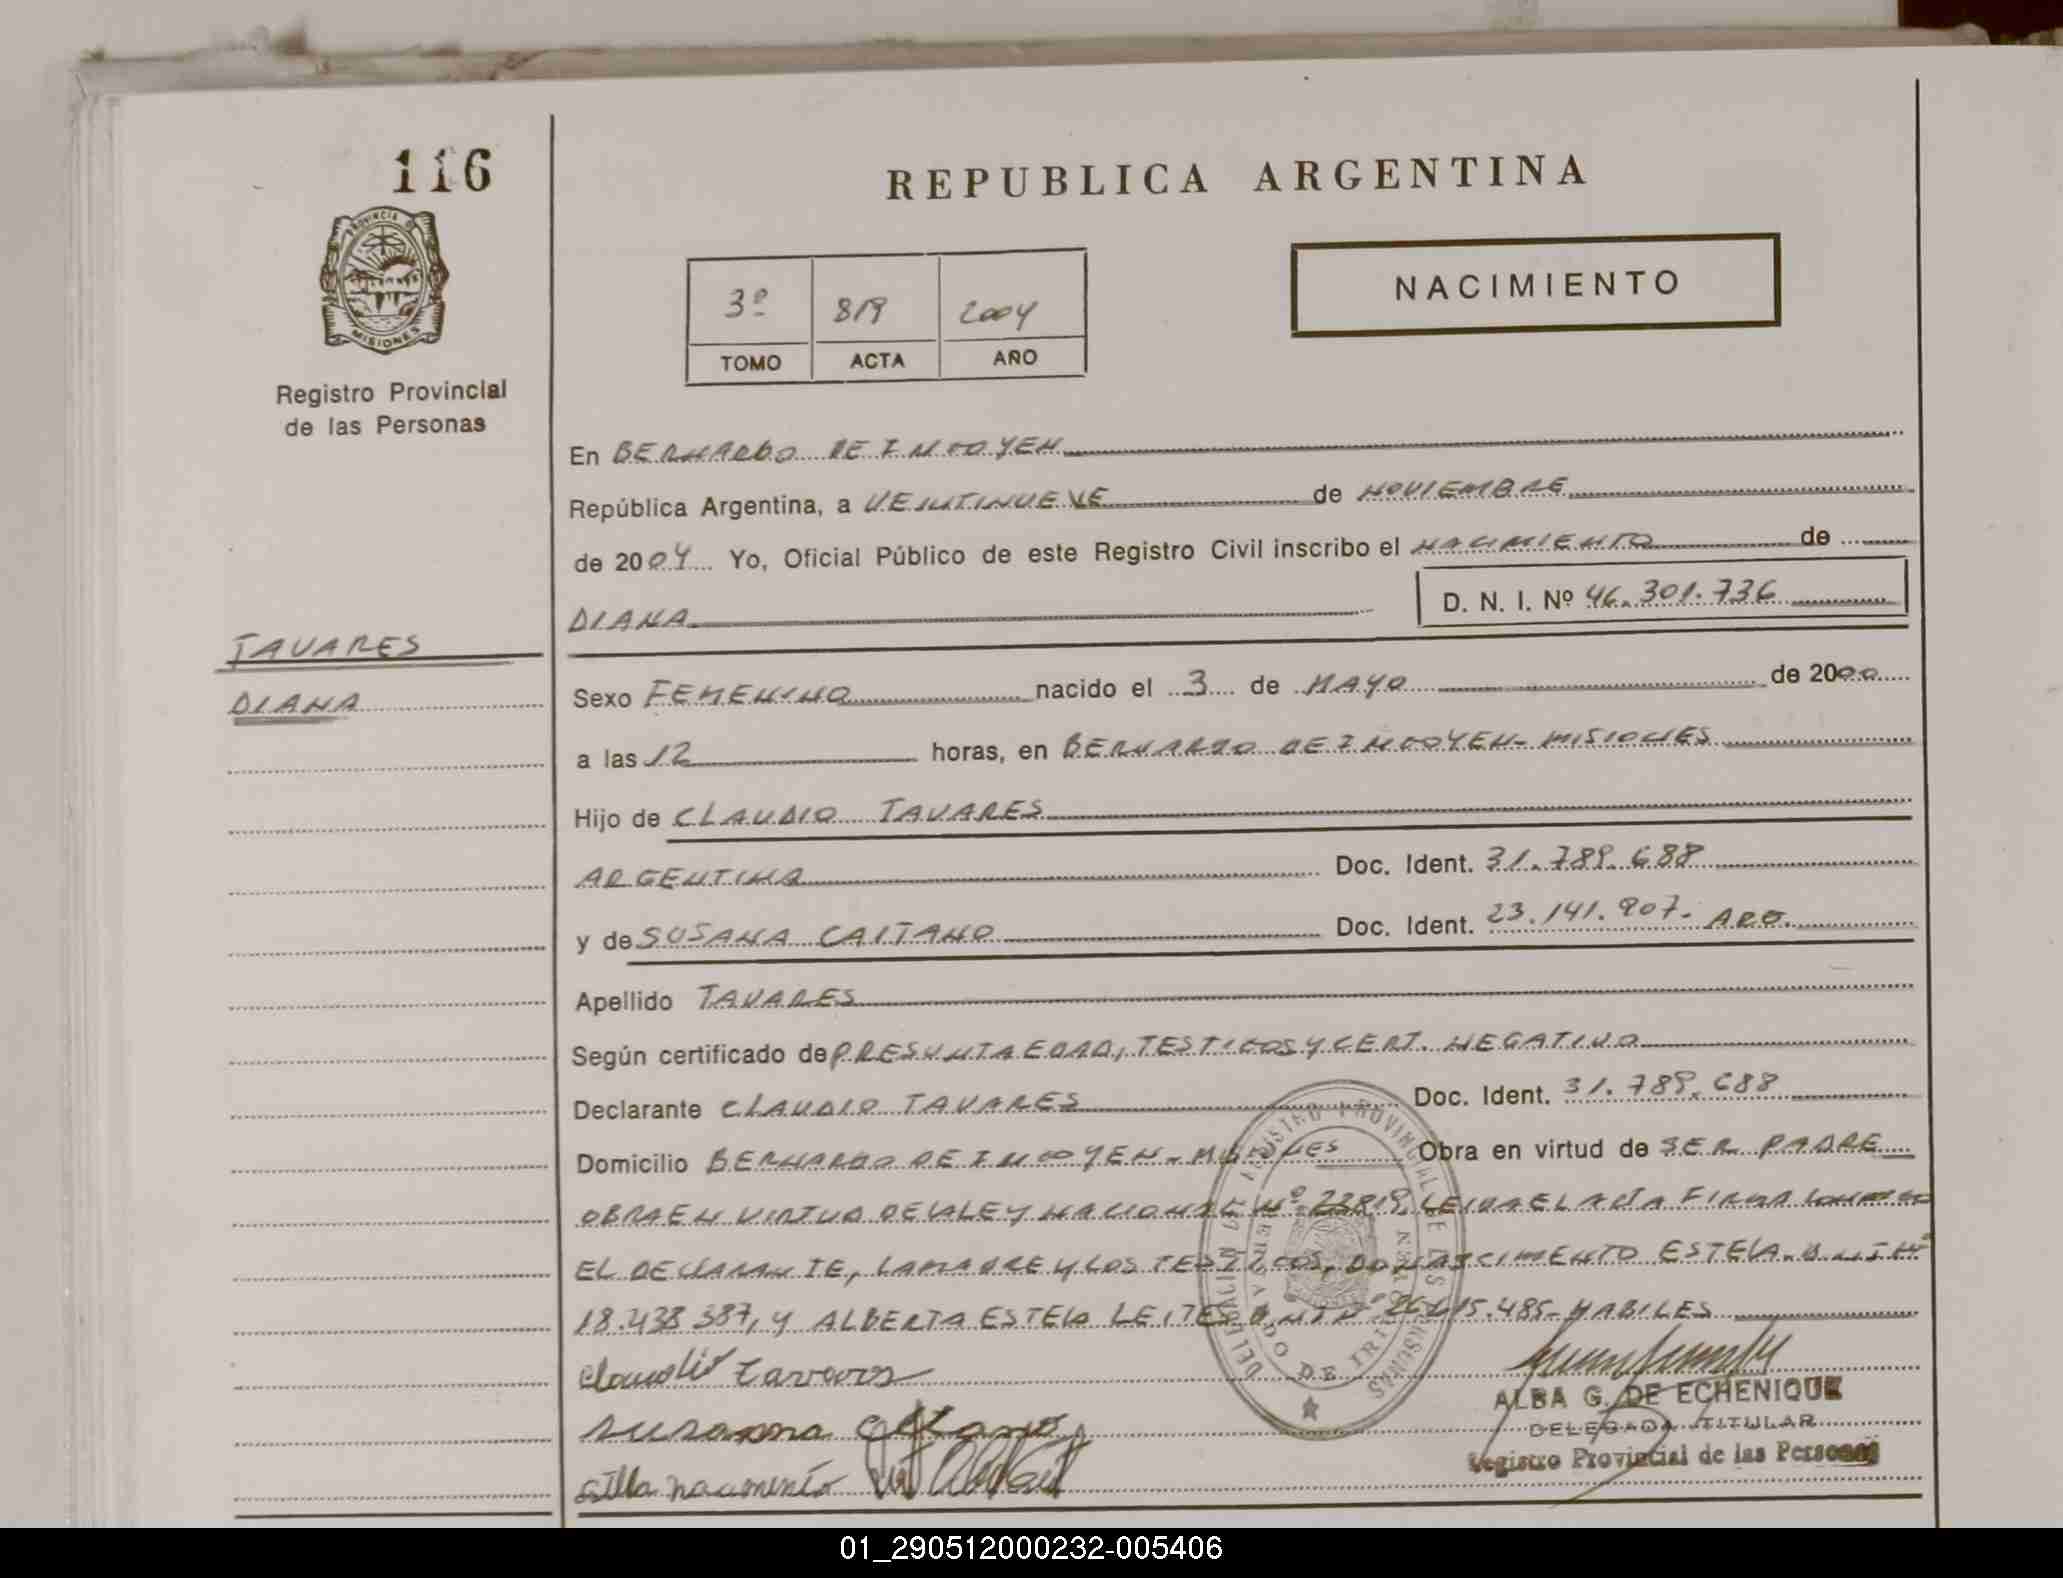 116
PROVINCIA DE
MISIONES
Registro Provincial
de las Personas
REPUBLICA ARGENTINA
NACIMIENTO
3º 819 2004
TOMO ACTA AÑO
En BERNARDO DE IRIGOYEN
República Argentina, a VEINTINUEVE de NOVIEMBRE
de 2004 Yo, Oficial Público de este Registro Civil inscribo el NACIMIENTO de
DIANA
D. N. I. Nº 46.301.736
TAVARES
DIANA
Sexo FEMENINO nacido el 3 de MAYO de 2000
a las 12 horas, en BERNARDO DE IRIGOYEN - MISIONES
Hijo de CLAUDIO TAVARES
ARGENTINA Doc. Ident. 31.789.688
y de SUSANA CAITANO Doc. Ident. 23.141.907. ARG.
Apellido TAVARES
Según certificado de PRESUNTA EDAD, TESTIGOS Y CERT. NEGATIVO
Declarante CLAUDIO TAVARES Doc. Ident. 31.789.688
Domicilio BERNARDO DE IRIGOYEN - MISIONES Obra en virtud de SER PADRE
OBRA EN VIRTUD DE LA LEY NACIONAL Nº 23819, LEIDA EL ACTA FIRMA CONMIGO
EL DECLARANTE, LA MADRE Y LOS TESTIGOS, DO NASCIMENTO ESTELA D.N.I Nº
18.438.387, Y ALBERTA ESTELA LEITES D.N.I Nº 415.485- HABILES
claudio tavares
susana
nacimento
ALBA G. DE ECHENIQUE
DELEGADA TITULAR
Registro Provincial de las Personas
DELEGACION REGISTRO PROVINCIAL DE LAS PERSONAS
BERNARDO DE IRIGOYEN
01_290512000232-005406